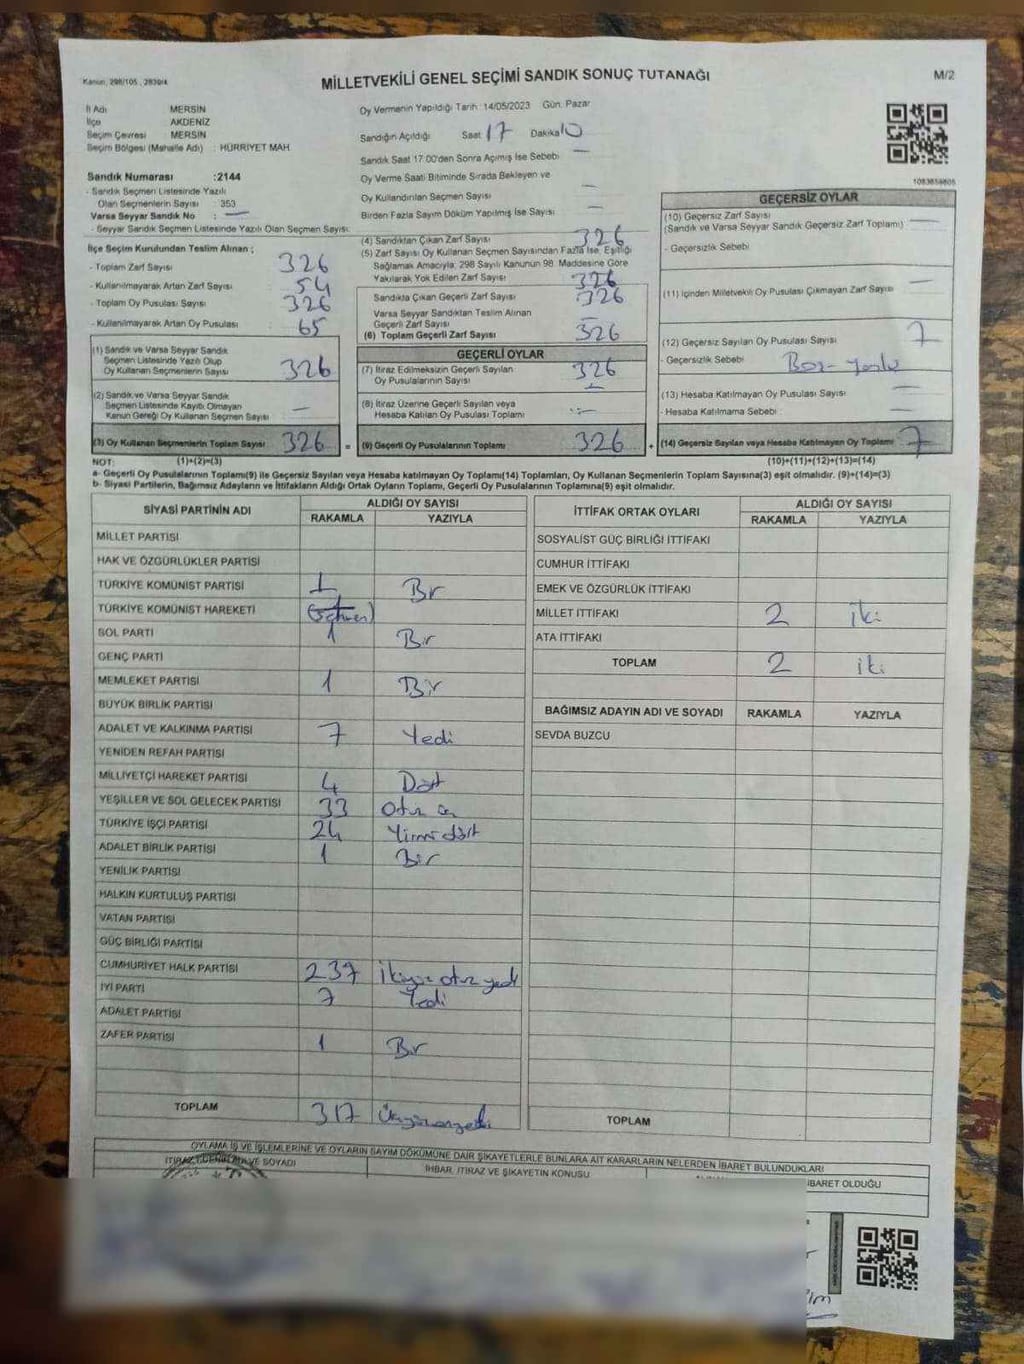 Kanun, 298/105, 2839/4
MİLLETVEKİLİ GENEL SEÇİMİ SANDIK SONUÇ TUTANAĞI
M/2
İl Adı MERSİN
İlçe AKDENİZ
Seçim Çevresi MERSİN
Seçim Bölgesi (Mahalle Adı) : HÜRRİYET MAH
Sandık Numarası :2144
- Sandık Seçmen Listesinde Yazılı
Olan Seçmenlerin Sayısı : 353
Varsa Seyyar Sandık No : —
- Seyyar Sandık Seçmen Listesinde Yazılı Olan Seçmen Sayısı
Oy Vermenin Yapıldığı Tarih :14/05/2023 Gün: Pazar
Sandığın Açıldığı Saat 17 Dakika 10
Sandık Saat 17.00'den Sonra Açılmış İse Sebebi —
Oy Verme Saati Bitiminde Sırada Bekleyen ve
Oy Kullandırılan Seçmen Sayısı —
Birden Fazla Sayım Döküm Yapılmış İse Sayısı —
1083858805
İlçe Seçim Kurulundan Teslim Alınan ;
- Toplam Zarf Sayısı 326
- Kullanılmayarak Artan Zarf Sayısı 54
- Toplam Oy Pusulası Sayısı 326
- Kullanılmayarak Artan Oy Pusulası 65
(1) Sandık ve Varsa Seyyar Sandık
Seçmen Listesinde Yazılı Olup
Oy Kullanan Seçmenlerin Sayısı 326
(2) Sandık ve Varsa Seyyar Sandık
Seçmen Listesinde Kayıtlı Olmayan
Kanun Gereği Oy Kullanan Seçmen Sayısı —
(3) Oy Kullanan Seçmenlerin Toplam Sayısı 326 =
(4) Sandıktan Çıkan Zarf Sayısı 326
(5) Zarf Sayısı Oy Kullanan Seçmen Sayısından Fazla İse, Eşitliği
Sağlamak Amacıyla; 298 Sayılı Kanunun 98. Maddesine Göre
Yakılarak Yok Edilen Zarf Sayısı 326
Sandıkta Çıkan Geçerli Zarf Sayısı 326
Varsa Seyyar Sandıktan Teslim Alınan
Geçerli Zarf Sayısı —
(6) Toplam Geçerli Zarf Sayısı 326
GEÇERLİ OYLAR
(7) İtiraz Edilmeksizin Geçerli Sayılan
Oy Pusulalarının Sayısı 326
(8) İtiraz Üzerine Geçerli Sayılan veya
Hesaba Katılan Oy Pusulası Toplamı —
(9) Geçerli Oy Pusulalarının Toplamı 326 +
GEÇERSİZ OYLAR
(10) Geçersiz Zarf Sayısı —
(Sandık ve Varsa Seyyar Sandık Geçersiz Zarf Toplamı)
- Geçersizlik Sebebi
(11) İçinden Milletvekili Oy Pusulası Çıkmayan Zarf Sayısı —
(12) Geçersiz Sayılan Oy Pusulası Sayısı 7
- Geçersizlik Sebebi
(13) Hesaba Katılmayan Oy Pusulası Sayısı —
- Hesaba Katılmama Sebebi : —
(14) Geçersiz Sayılan veya Hesaba Katılmayan Oy Toplamı 7
NOT: (1)+(2)=(3)
(10)+(11)+(12)+(13)=(14)
a- Geçerli Oy Pusulalarının Toplamı(9) ile Geçersiz Sayılan veya Hesaba katılmayan Oy Toplamı(14) Toplamları, Oy Kullanan Seçmenlerin Toplam Sayısına(3) eşit olmalıdır. (9)+(14)=(3)
b- Siyasi Partilerin, Bağımsız Adayların ve İttifakların Aldığı Ortak Oyların Toplamı, Geçerli Oy Pusulalarının Toplamına(9) eşit olmalıdır.
SİYASİ PARTİNİN ADI ALDIĞI OY SAYISI
RAKAMLA YAZIYLA
MİLLET PARTİSİ
HAK VE ÖZGÜRLÜKLER PARTİSİ
TÜRKİYE KOMÜNİST PARTİSİ 1 Bir
TÜRKİYE KOMÜNİST HAREKETİ
SOL PARTİ 1 Bir
GENÇ PARTİ
MEMLEKET PARTİSİ 1 Bir
BÜYÜK BİRLİK PARTİSİ
ADALET VE KALKINMA PARTİSİ 7 Yedi
YENİDEN REFAH PARTİSİ
MİLLİYETÇİ HAREKET PARTİSİ 4 Dört
YEŞİLLER VE SOL GELECEK PARTİSİ 33 Otuz üç
TÜRKİYE İŞÇİ PARTİSİ 24 Yirmi dört
ADALET BİRLİK PARTİSİ 1 Bir
YENİLİK PARTİSİ
HALKIN KURTULUŞ PARTİSİ
VATAN PARTİSİ
GÜÇ BİRLİĞİ PARTİSİ
CUMHURİYET HALK PARTİSİ 237 İkiyüz otuz yedi
İYİ PARTİ 7 Yedi
ADALET PARTİSİ
ZAFER PARTİSİ 1 Bir
TOPLAM 317 Üçyüzonyedi
İTTİFAK ORTAK OYLARI ALDIĞI OY SAYISI
RAKAMLA YAZIYLA
SOSYALİST GÜÇ BİRLİĞİ İTTİFAKI
CUMHUR İTTİFAKI
EMEK VE ÖZGÜRLÜK İTTİFAKI
MİLLET İTTİFAKI 2 iki
ATA İTTİFAKI
TOPLAM 2 iki
BAĞIMSIZ ADAYIN ADI VE SOYADI RAKAMLA YAZIYLA
SEVDA BUZCU
TOPLAM
OYLAMA İŞ VE İŞLEMLERİNE VE OYLARIN SAYIM DÖKÜMÜNE DAİR ŞİKAYETLERLE BUNLARA AİT KARARLARIN NELERDEN İBARET BULUNDUKLARI
İTİRAZ EDENİN ADI VE SOYADI
İHBAR, İTİRAZ VE ŞİKAYETİN KONUSU
İBARET OLDUĞU